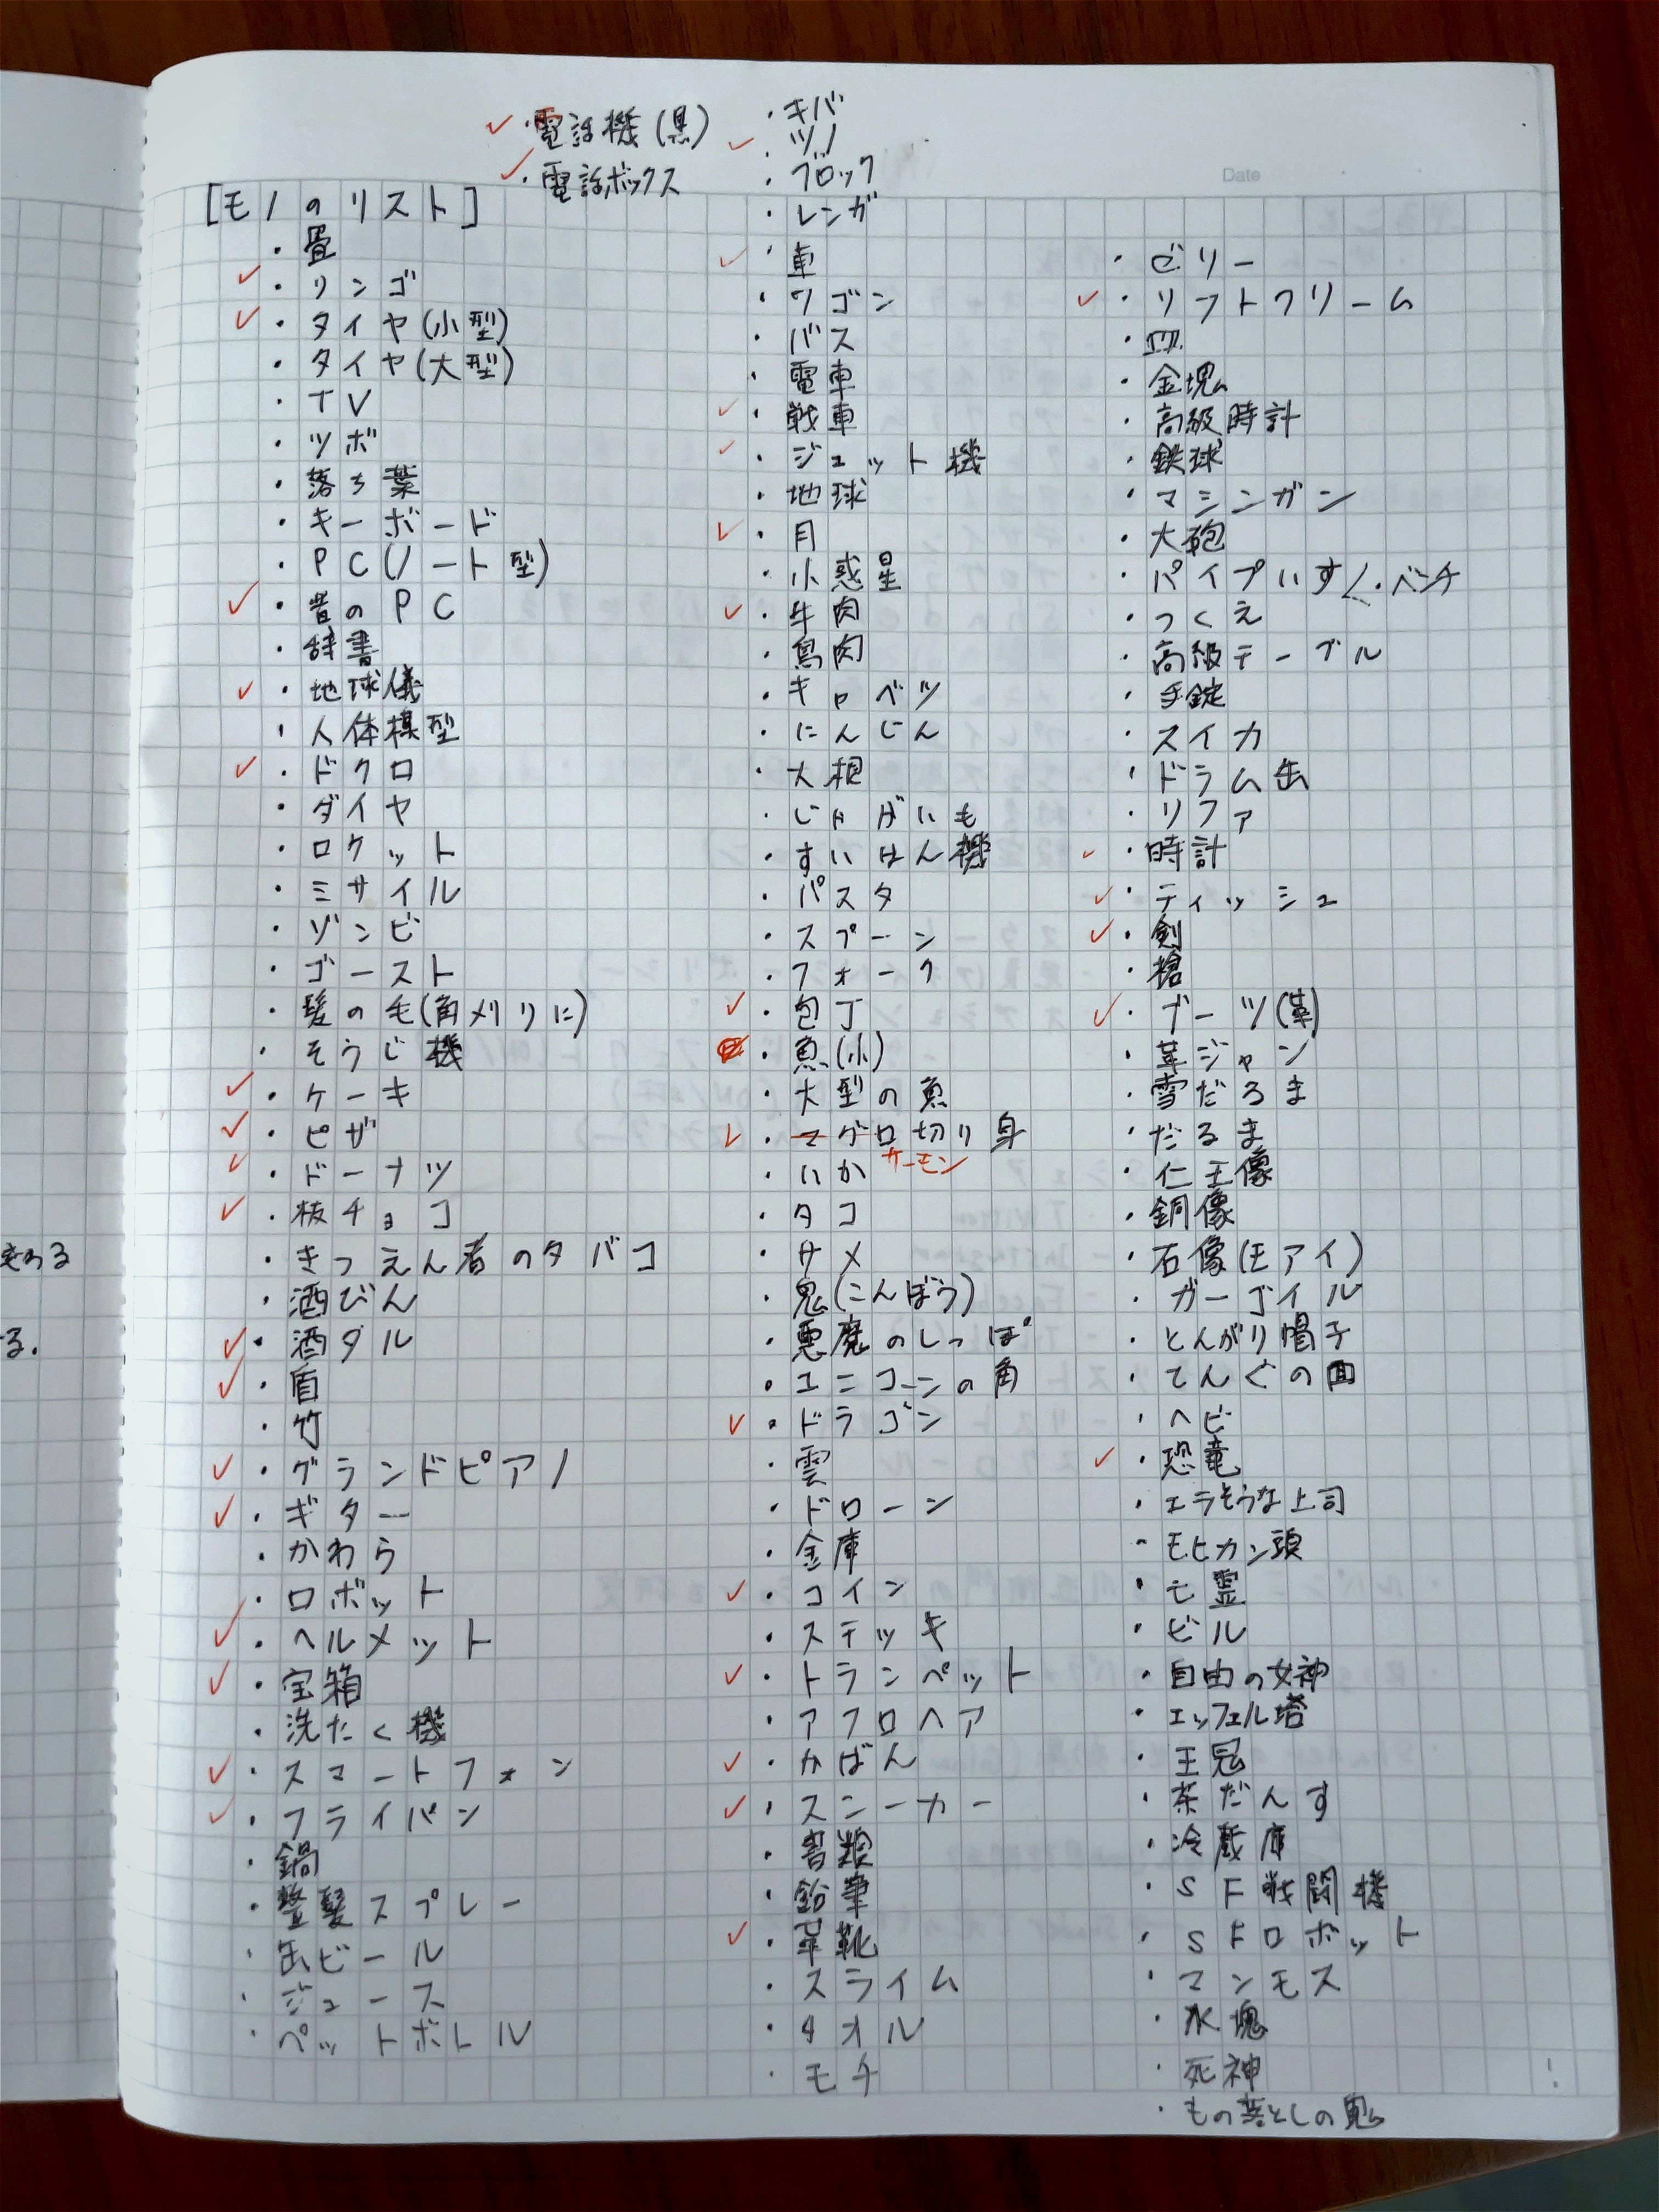 ・電話機(黒)
・電話ボックス
[モノのリスト]
・畳
・リンゴ
・タイヤ(小型)
・タイヤ(大型)
・TV
・ツボ
・落ち葉
・キーボード
・PC(ノート型)
・昔のPC
・辞書
・地球儀
・人体模型
・ドクロ
・ダイヤ
・ロケット
・ミサイル
・ゾンビ
・ゴースト
・髪の毛(角刈りに)
・そうじ機
・ケーキ
・ピザ
・ドーナツ
・板チョコ
・きつえん者のタバコ
・酒びん
・酒ダル
・盾
・竹
・グランドピアノ
・ギター
・かわら
・ロボット
・ヘルメット
・宝箱
・洗たく機
・スマートフォン
・フライパン
・鍋
・整髪スプレー
・缶ビール
・ジュース
・ペットボトル
・キバ
・ツノ
・ブロック
・レンガ
・車
・ワゴン
・バス
・電車
・戦車
・ジェット機
・地球
・月
・小惑星
・牛肉
・鳥肉
・キャベツ
・にんじん
・大根
・じゃがいも
・すいはん機
・パスタ
・スプーン
・フォーク
・包丁
・魚(小)
・大型の魚
・マグロ切り身
サーモン
・いか
・タコ
・サメ
・鬼(こんぼう)
・悪魔のしっぽ
・ユニコーンの角
・ドラゴン
・雲
・ドローン
・金庫
・コイン
・ステッキ
・トランペット
・アフロヘア
・かばん
・スニーカー
・書類
・鉛筆
・革靴
・スライム
・タオル
・モチ
Date
・ゼリー
・ソフトクリーム
・皿
・金塊
・高級時計
・鉄球
・マシンガン
・大砲
・パイプいす ・ベンチ
・つくえ
・高級テーブル
・手錠
・スイカ
・ドラム缶
・ソファ
・時計
・ティッシュ
・剣
・槍
・ブーツ(革)
・革ジャン
・雪だるま
・だるま
・仁王像
・銅像
・石像(モアイ)
・ガーゴイル
・とんがり帽子
・てんぐの面
・ヘビ
・恐竜
・エラそうな上司
・モヒカン頭
・亡霊
・ビル
・自由の女神
・エッフェル塔
・王冠
・茶だんす
・冷蔵庫
・SF戦闘機
・SFロボット
・マンモス
・氷塊
・死神
・もの落としの鬼